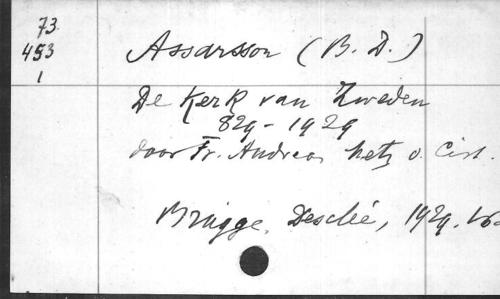 73
453
1
Assarsson (B. D.)
De Kerk van Zweden
829-1929
door Fr. Andreas o. Cist.
Brugge, Desclée, 1929.